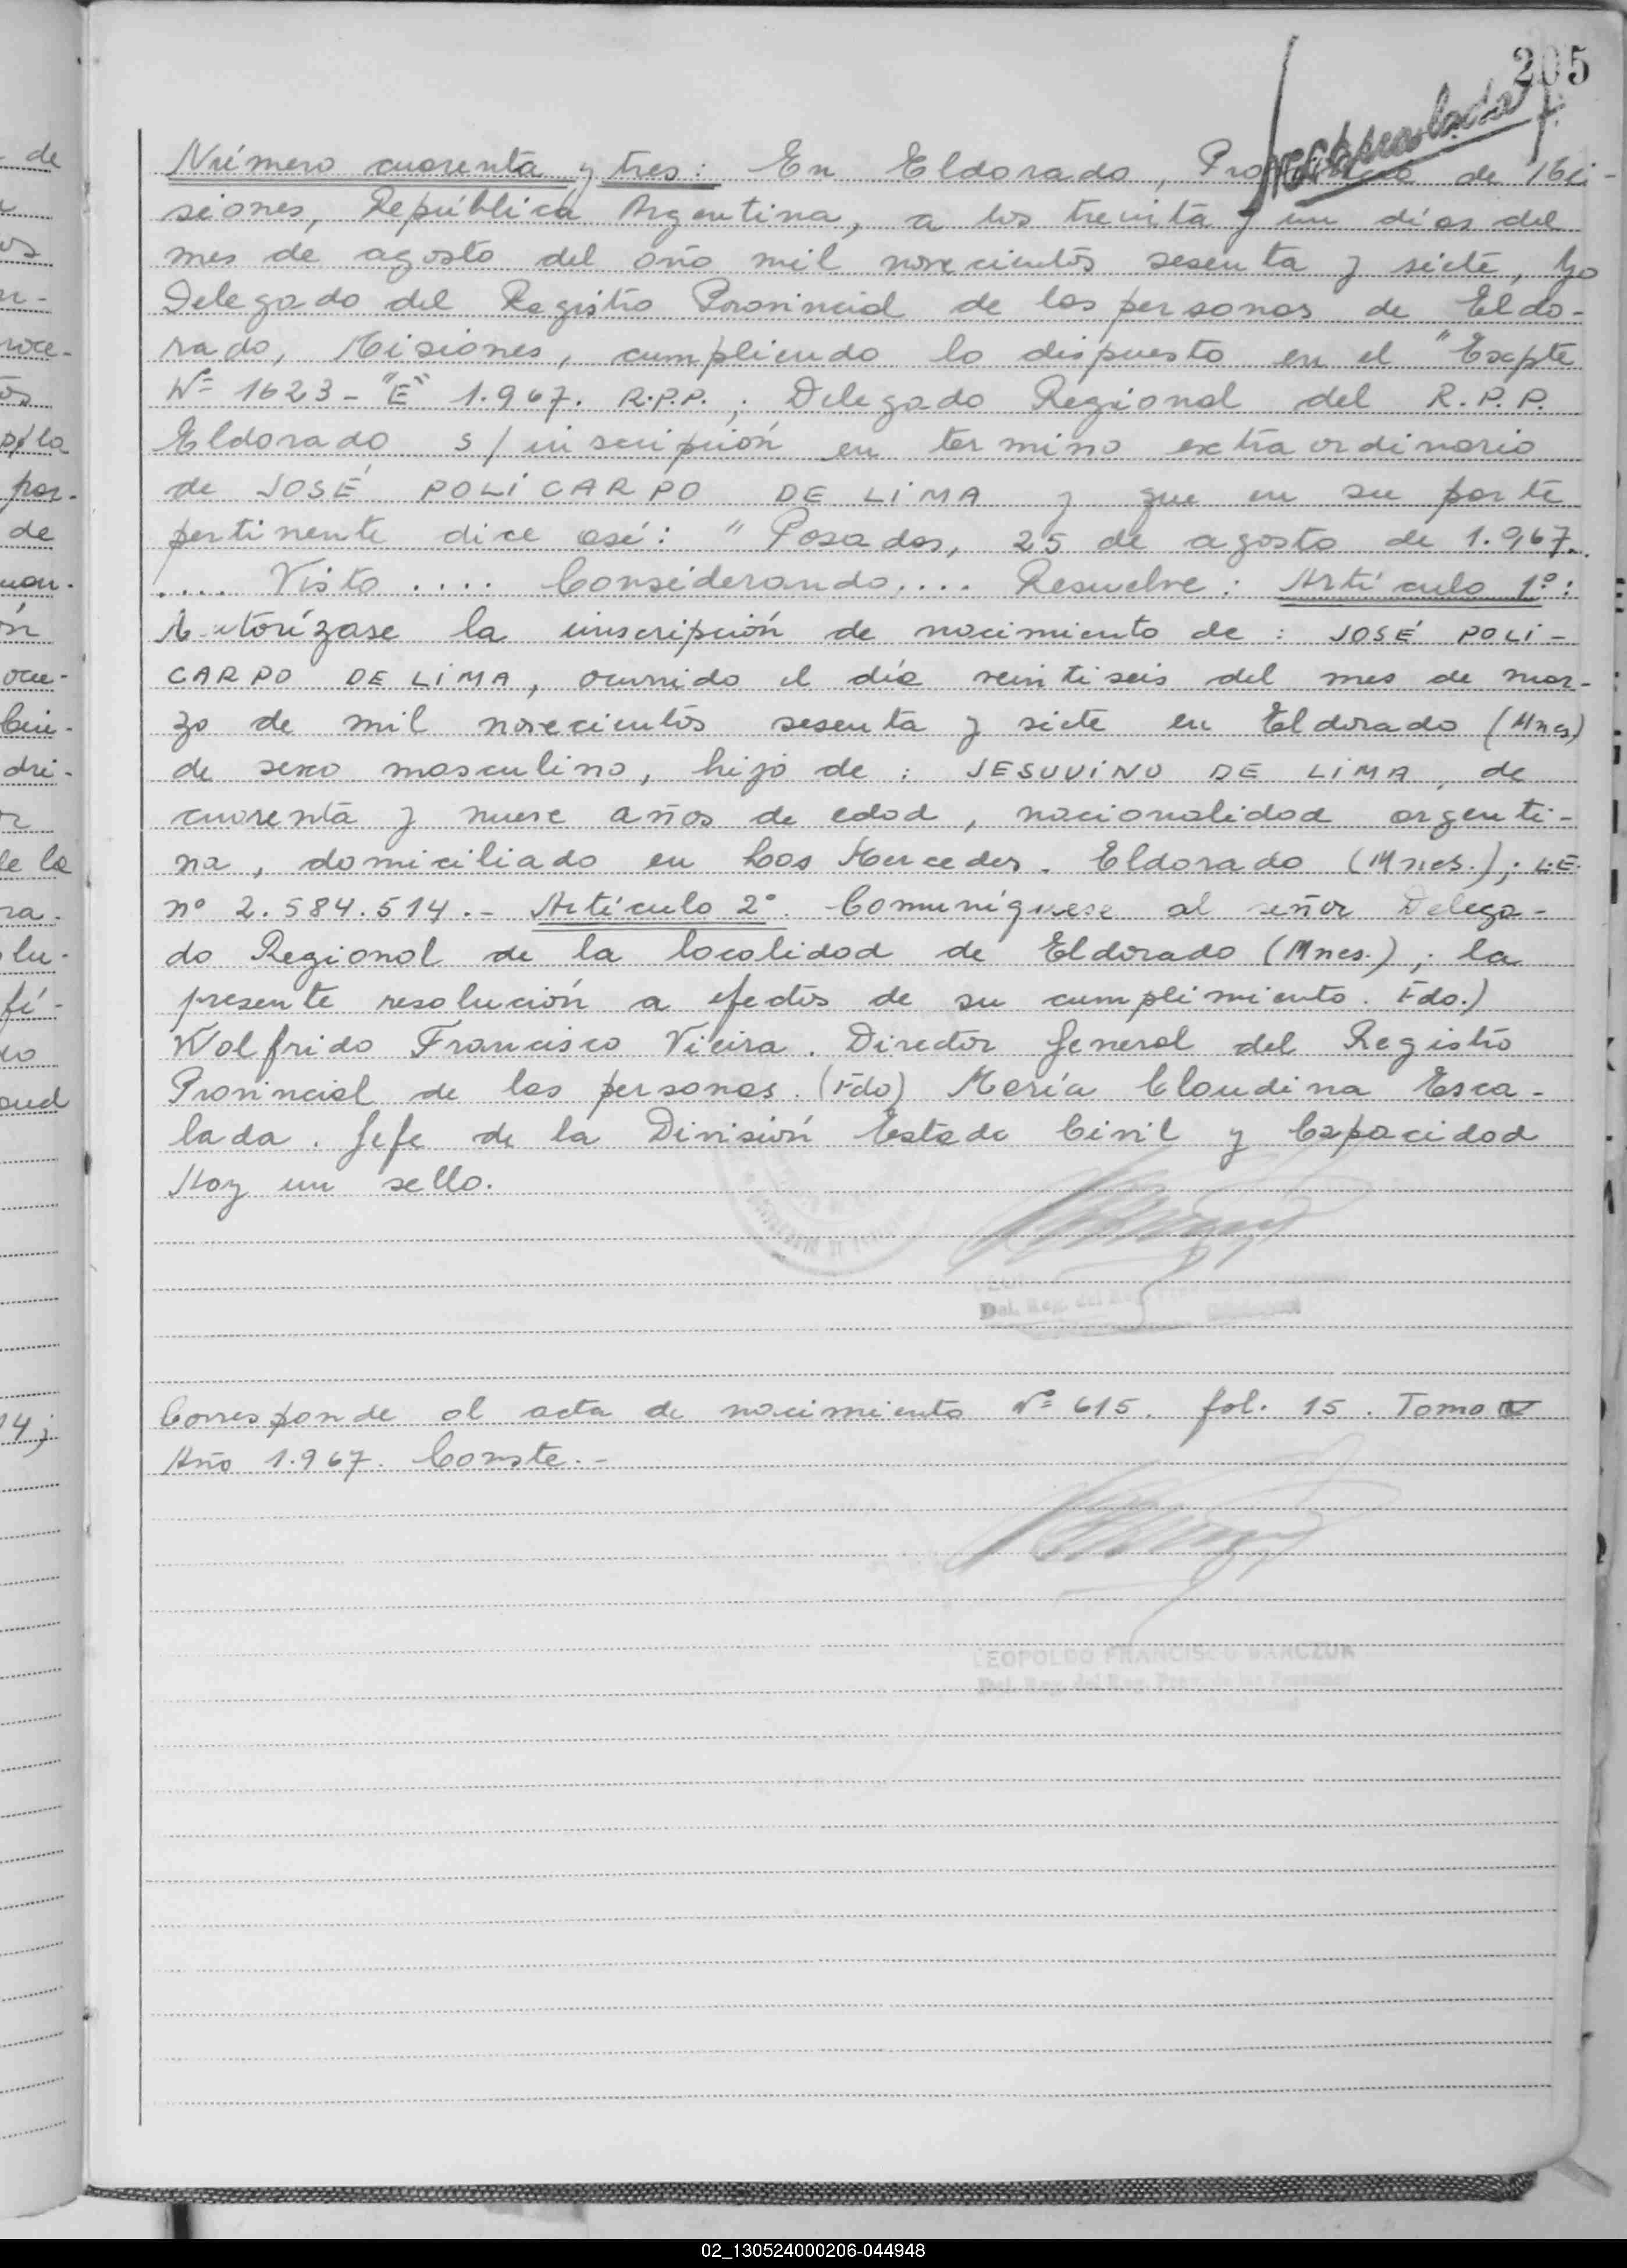 205
Número cuarenta y tres: En Eldorado, Provincia de Mi-
siones, República Argentina, a los treinta y un días del
mes de agosto del año mil novecientos sesenta y siete, Yo
Delegado del Registro Provincial de las personas de Eldo-
rado, Misiones, cumpliendo lo dispuesto en el "Expte
Nº 1623 - "E" 1.967. R.P.P.; Delegado Regional del R.P.P.
Eldorado s/ inscripción en termino extraordinario
de JOSÉ POLICARPO DE LIMA y que en su parte
pertinente dice así: " Posadas, 25 de agosto de 1.967.
.... Visto .... Considerando.... Resuelve: Artículo 1º:
Autorízase la inscripción de nacimiento de: JOSÉ POLI-
CARPO DE LIMA, ocurrido el día veintiseis del mes de mar-
zo de mil novecientos sesenta y siete en Eldorado (Mnes)
de sexo masculino, hijo de: JESUVINO DE LIMA, de
cuarenta y nueve años de edad, nacionalidad argenti-
na, domiciliado en Las Mercedes. Eldorado (Mnes.); L.E.
nº 2.584.514.- Artículo 2º. Comuníquese al señor Delega-
do Regional de la localidad de Eldorado (Mnes.); la
presente resolución a efectos de su cumplimiento. Fdo.)
Wolfrido Francisco Vieira. Director General del Registro
Provincial de las personas. (Fdo) María Claudina Esca-
lada. Jefe de la División Estado Civil y Capacidad
Hay un sello.
Del. Reg. del Reg.
Corresponde al acta de nacimiento Nº 615. fol. 15. Tomo V
Año 1.967. Conste.-
LEOPOLDO FRANCISCO
Del. Reg. del Reg. Prov. de las Personas
de
roce-
p/la
por-
de
ocu-
dri-
de la
ra-
lu-
fi-
14;
02_130524000206-044948